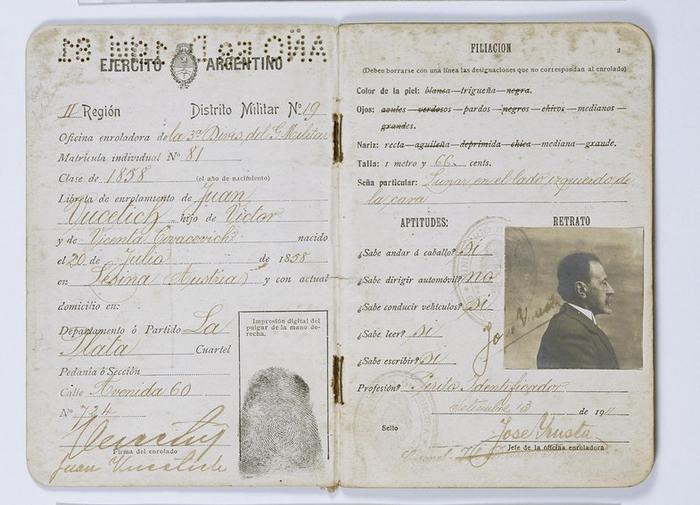 EJERCITO ARGENTINO
II Región Distrito Militar N.º 19
Oficina enroladora de la 3ª Devis. del G. Militar
Matrícula individual Nº 81
Clase de 1858 (el año de nacimiento)
Libreta de enrolamiento de Juan
Vucetich hijo de Victor
y de Vicenta Covacevich nacido
el 20 de Julio de 1858
en Lesina (Austria) y con actual
domicilio en:
Departamento ó Partido La
Plata Cuartel
Pedania ó Sección
Calle Avenida 60
Nº 724
Firma del enrolado
Juan Vucetich
Impresión digital del
pulgar de la mano de-
recha.
FILIACION
2
(Deben borrarse con una línea las designaciones que no correspondan al enrolado)
Color de la piel: blanca—trigueña—negra.
Ojos: azules—verdosos—pardos—negros—chicos—medianos—
grandes.
Nariz: recta—aguileña—deprimida—chica—mediana—grande.
Talla: 1 metro y 66 cents.
Seña particular: Lunar en el lado izquierdo de
la cara
APTITUDES:
¿Sabe andar á caballo? Si
¿Sabe dirigir automóvil? no
¿Sabe conducir vehículos? Si
¿Sabe leer? Si
¿Sabe escribir? Si
RETRATO
Profesión? Perito Identificador
Setiembre 13 de 1911
Sello
Jefe de la oficina enroladora